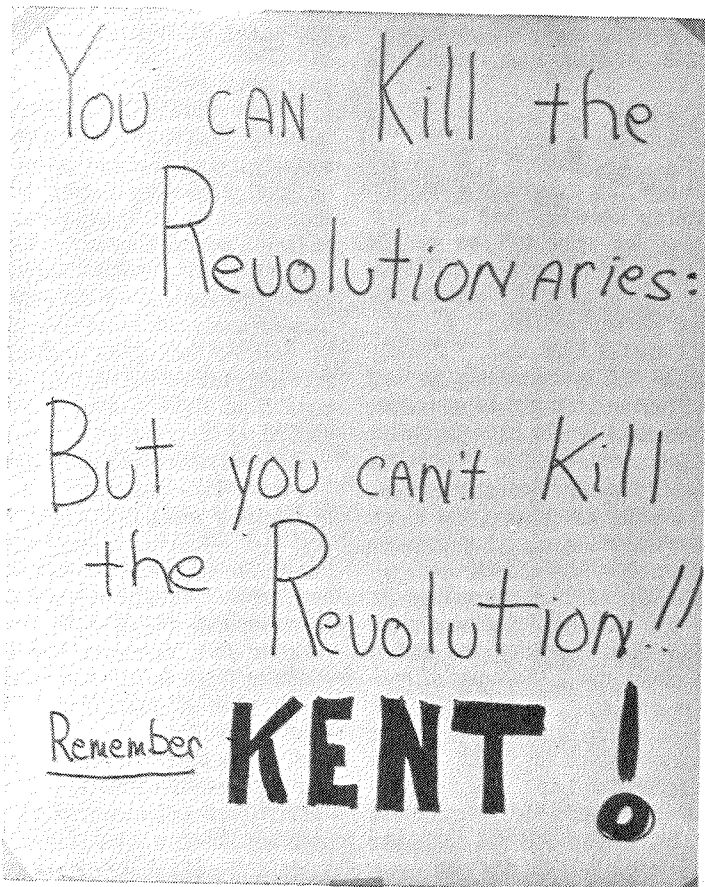 You CAN Kill the
Revolutionaries:
But you CAN't Kill
the Revolution!!
Remember KENT!